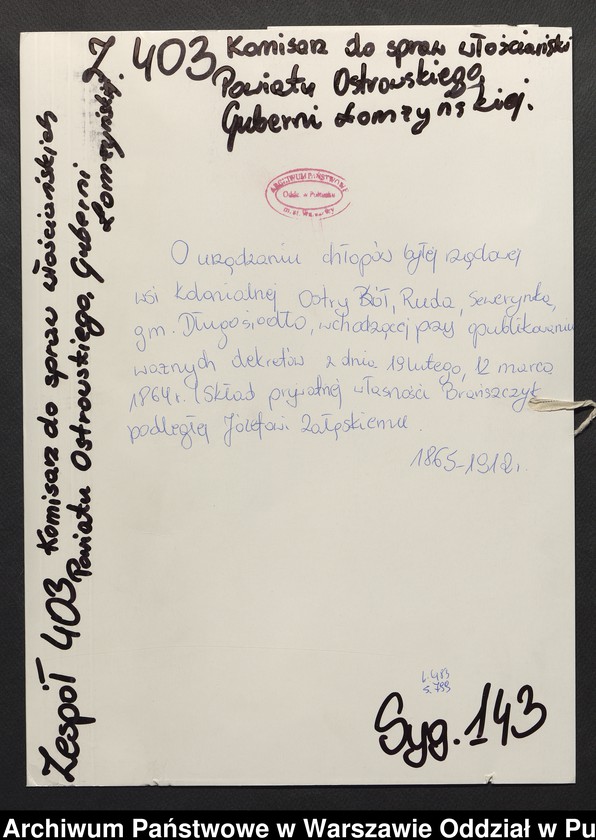 Z 403 Komisarz do spraw włościański
Powiatu Ostrowskiego,
Guberni Łomżyńskiej.
Zespół 403 Komisarz do spraw włościańskich
Powiatu Ostrowskiego, Guberni
Łomżyńskiej.
ARCHIWUM PAŃSTWOWE
Oddz. w Pułtusku
m. st. Warszawy
O urządzaniu chłopów byłej rządowej
wsi kolonialnej Ostry Bół, Ruda, Sewerynka,
gm. Długosiodło, wchodzącej przy opublikowaniu
ważnych dekretów z dnia 19 lutego, 12 marca
1864 r. Skład prywatnej własności Brańszczyk
podległej Józefowi Załęskiemu.
1865-1912 r.
s. 799
Syg. 143
Archiwum Państwowe w Warszawie Oddział w Pu